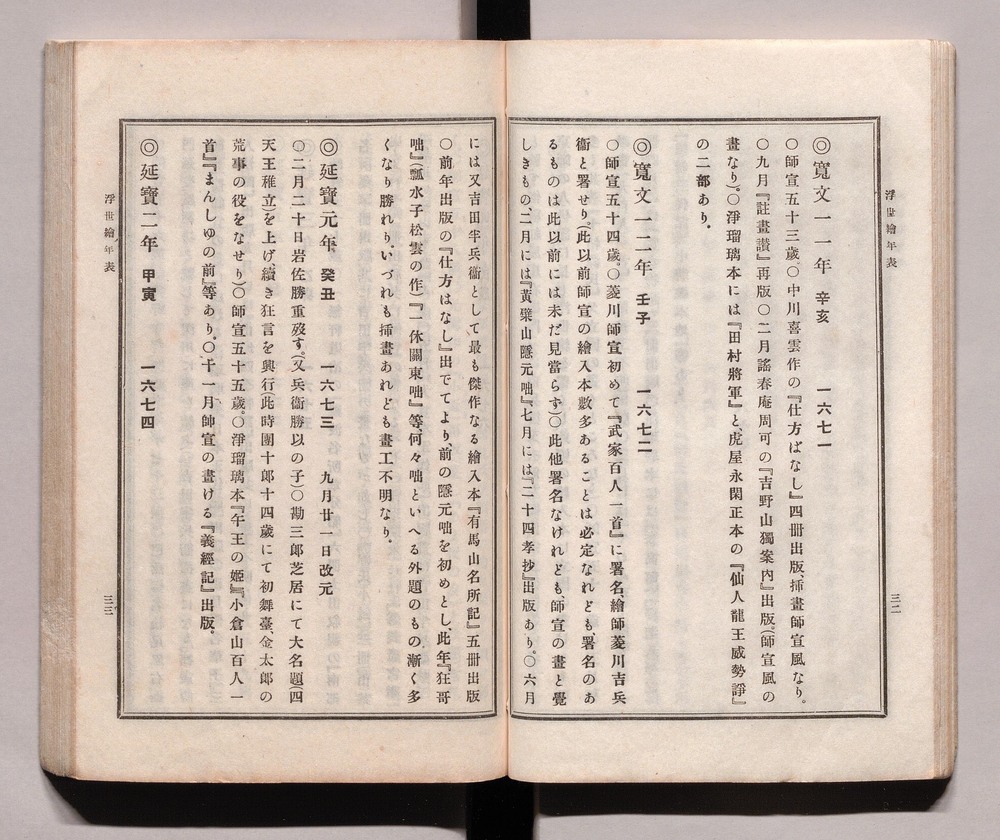 浮世繪年表
三二
◎寬文一一年 辛亥 一六七一
○師宣五十三歲。○中川喜雲作の『仕方ばなし』四册出版、揷畫師宣風なり。
○九月『註畫讃』再版○二月謠春庵周可の『吉野山獨案內』出版。(師宣風の
畫なり)。○淨瑠璃本には『田村將軍』と、虎屋永閑正本の『仙人龍王威勢諍』
の二部あり。
◎寬文一二年 壬子 一六七二
○師宣五十四歲。○菱川師宣初めて『武家百人一首』に署名、繪師菱川吉兵
衞と署せり。(此以前師宣の繪入本數多あることは必定なれども、署名のあ
るものは此以前には未だ見當らず)○此他署名なけれども、師宣の畫と覺
しきもの、二月には『黃檗山隱元咄』、七月には『二十四孝抄』出版あり。○六月
には又吉田半兵衞として最も傑作なる繪入本『有馬山名所記』五册出版
○前年出版の『仕方はなし』出でてより、前の隱元咄を初めとし、此年『狂哥
咄』(瓢水子松雲の作)『一休關東咄』等、何々咄といへる外題のもの漸く多
くなり勝れり。いづれも揷畫あれども畫工不明なり。
◎延寶元年 癸丑 一六七三 九月廿一日改元
○二月二十日岩佐勝重歿す。(又兵衞勝以の子)○勘三郎芝居にて大名題(四
天王稚立)を上げ、續き狂言を興行(此時團十郎十四歲にて初舞臺、金太郎の
荒事の役をなせり)○師宣五十五歲。○淨瑠璃本『午王の姬』『小倉山百人一
首』『まんしゆの前』等あり。○十一月師宣の畫ける『義經記』出版。
◎延寶二年 甲寅 一六七四
浮世繪年表
三三